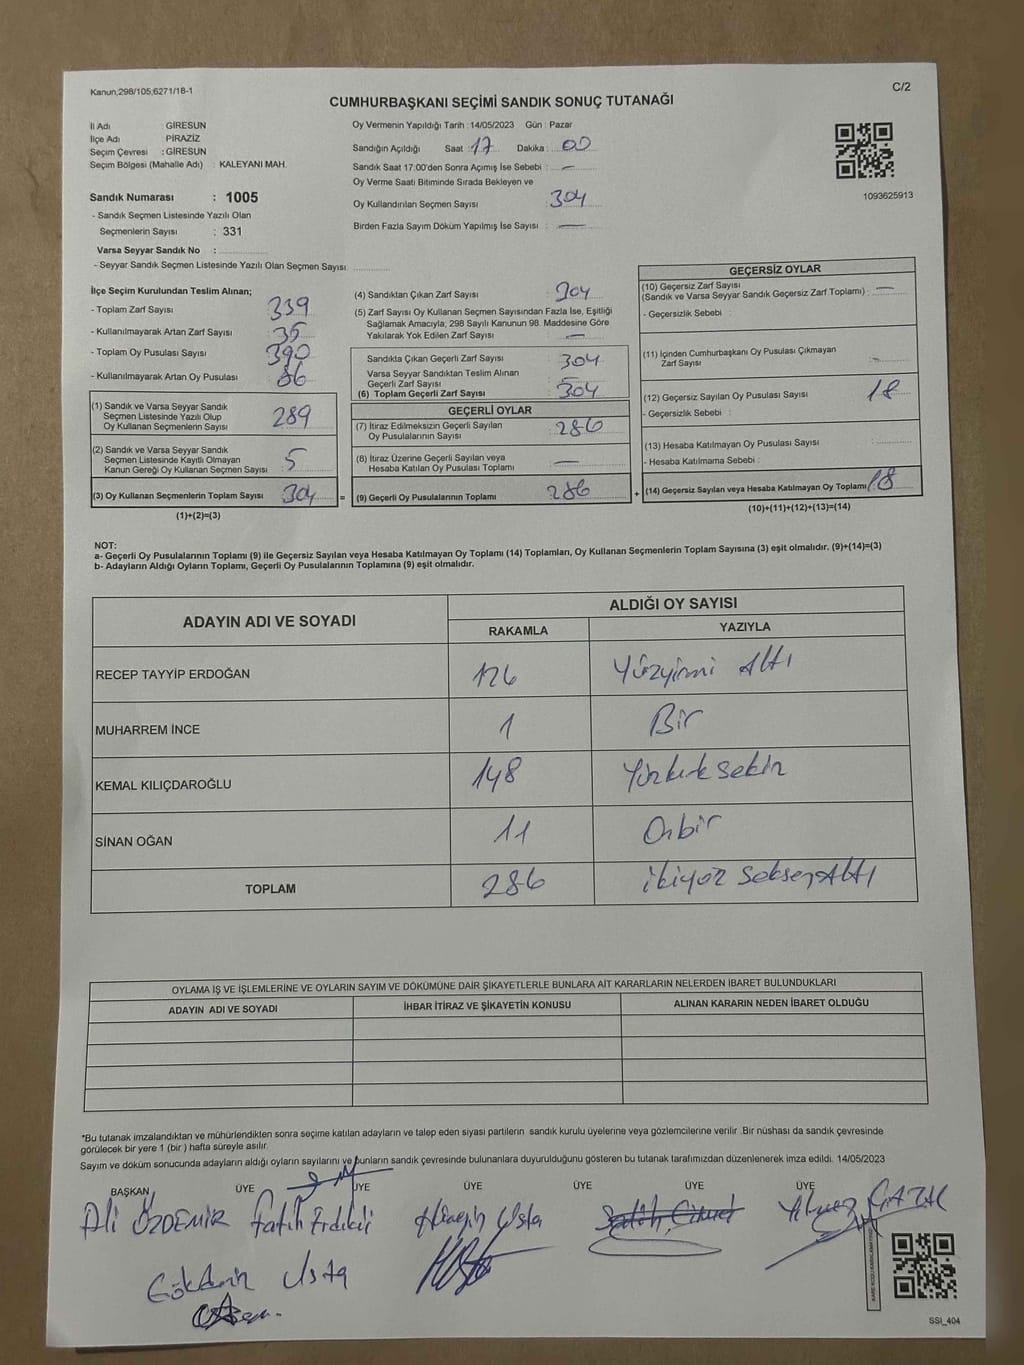 Kanun,298/105,6271/18-1
C/2
CUMHURBAŞKANI SEÇİMİ SANDIK SONUÇ TUTANAĞI
İl Adı : GİRESUN
İlçe Adı : PİRAZİZ
Seçim Çevresi : GİRESUN
Seçim Bölgesi (Mahalle Adı) : KALEYANI MAH.
Sandık Numarası : 1005
- Sandık Seçmen Listesinde Yazılı Olan
Seçmenlerin Sayısı : 331
Varsa Seyyar Sandık No :
- Seyyar Sandık Seçmen Listesinde Yazılı Olan Seçmen Sayısı
Oy Vermenin Yapıldığı Tarih : 14/05/2023 Gün : Pazar
Sandığın Açıldığı Saat : 17 Dakika : 00
Sandık Saat 17:00'den Sonra Açımış İse Sebebi : —
Oy Verme Saati Bitiminde Sırada Bekleyen ve
Oy Kullandırılan Seçmen Sayısı 304
Birden Fazla Sayım Döküm Yapılmış İse Sayısı : —
1093625913
İlçe Seçim Kurulundan Teslim Alınan;
- Toplam Zarf Sayısı 339
- Kullanılmayarak Artan Zarf Sayısı 35
- Toplam Oy Pusulası Sayısı 390
- Kullanılmayarak Artan Oy Pusulası 86
(1) Sandık ve Varsa Seyyar Sandık
Seçmen Listesinde Yazılı Olup
Oy Kullanan Seçmenlerin Sayısı 289
(2) Sandık ve Varsa Seyyar Sandık
Seçmen Listesinde Kayıtlı Olmayan
Kanun Gereği Oy Kullanan Seçmen Sayısı 5
(3) Oy Kullanan Seçmenlerin Toplam Sayısı 304 =
(1)+(2)=(3)
(4) Sandıktan Çıkan Zarf Sayısı 304
(5) Zarf Sayısı Oy Kullanan Seçmen Sayısından Fazla İse, Eşitliği
Sağlamak Amacıyla; 298 Sayılı Kanunun 98. Maddesine Göre
Yakılarak Yok Edilen Zarf Sayısı —
Sandıkta Çıkan Geçerli Zarf Sayısı 304
Varsa Seyyar Sandıktan Teslim Alınan
Geçerli Zarf Sayısı —
(6) Toplam Geçerli Zarf Sayısı 304
GEÇERLİ OYLAR
(7) İtiraz Edilmeksizin Geçerli Sayılan
Oy Pusulalarının Sayısı 286
(8) İtiraz Üzerine Geçerli Sayılan veya
Hesaba Katılan Oy Pusulası Toplamı —
(9) Geçerli Oy Pusulalarının Toplamı 286 +
GEÇERSİZ OYLAR
(10) Geçersiz Zarf Sayısı
(Sandık ve Varsa Seyyar Sandık Geçersiz Zarf Toplamı) : —
- Geçersizlik Sebebi :
(11) İçinden Cumhurbaşkanı Oy Pusulası Çıkmayan
Zarf Sayısı —
(12) Geçersiz Sayılan Oy Pusulası Sayısı 18
- Geçersizlik Sebebi :
(13) Hesaba Katılmayan Oy Pusulası Sayısı :
- Hesaba Katılmama Sebebi :
(14) Geçersiz Sayılan veya Hesaba Katılmayan Oy Toplamı 18
(10)+(11)+(12)+(13)=(14)
NOT:
a- Geçerli Oy Pusulalarının Toplamı (9) ile Geçersiz Sayılan veya Hesaba Katılmayan Oy Toplamı (14) Toplamları, Oy Kullanan Seçmenlerin Toplam Sayısına (3) eşit olmalıdır. (9)+(14)=(3)
b- Adayların Aldığı Oyların Toplamı, Geçerli Oy Pusulalarının Toplamına (9) eşit olmalıdır.
ADAYIN ADI VE SOYADI ALDIĞI OY SAYISI
RAKAMLA YAZIYLA
RECEP TAYYİP ERDOĞAN 126 Yüzyirmi Altı
MUHARREM İNCE 1 Bir
KEMAL KILIÇDAROĞLU 148 Yüzkırk sekiz
SİNAN OĞAN 11 Onbir
TOPLAM 286 ikiyüz seksen Altı
OYLAMA İŞ VE İŞLEMLERİNE VE OYLARIN SAYIM VE DÖKÜMÜNE DAİR ŞİKAYETLERLE BUNLARA AİT KARARLARIN NELERDEN İBARET BULUNDUKLARI
ADAYIN ADI VE SOYADI İHBAR İTİRAZ VE ŞİKAYETİN KONUSU ALINAN KARARIN NEDEN İBARET OLDUĞU
*Bu tutanak imzalandıktan ve mühürlendikten sonra seçime katılan adayların ve talep eden siyasi partilerin sandık kurulu üyelerine veya gözlemcilerine verilir .Bir nüshası da sandık çevresinde
görülecek bir yere 1 (bir ) hafta süreyle asılır.
Sayım ve döküm sonucunda adayların aldığı oyların sayılarını ve bunların sandık çevresinde bulunanlara duyurulduğunu gösteren bu tutanak tarafımızdan düzenlenerek imza edildi. 14/05/2023
BAŞKAN ÜYE ÜYE ÜYE ÜYE ÜYE ÜYE
Ali ÖZDEMİR Fatih Hüseyin Usta Yılmaz
Usta
SSI_404